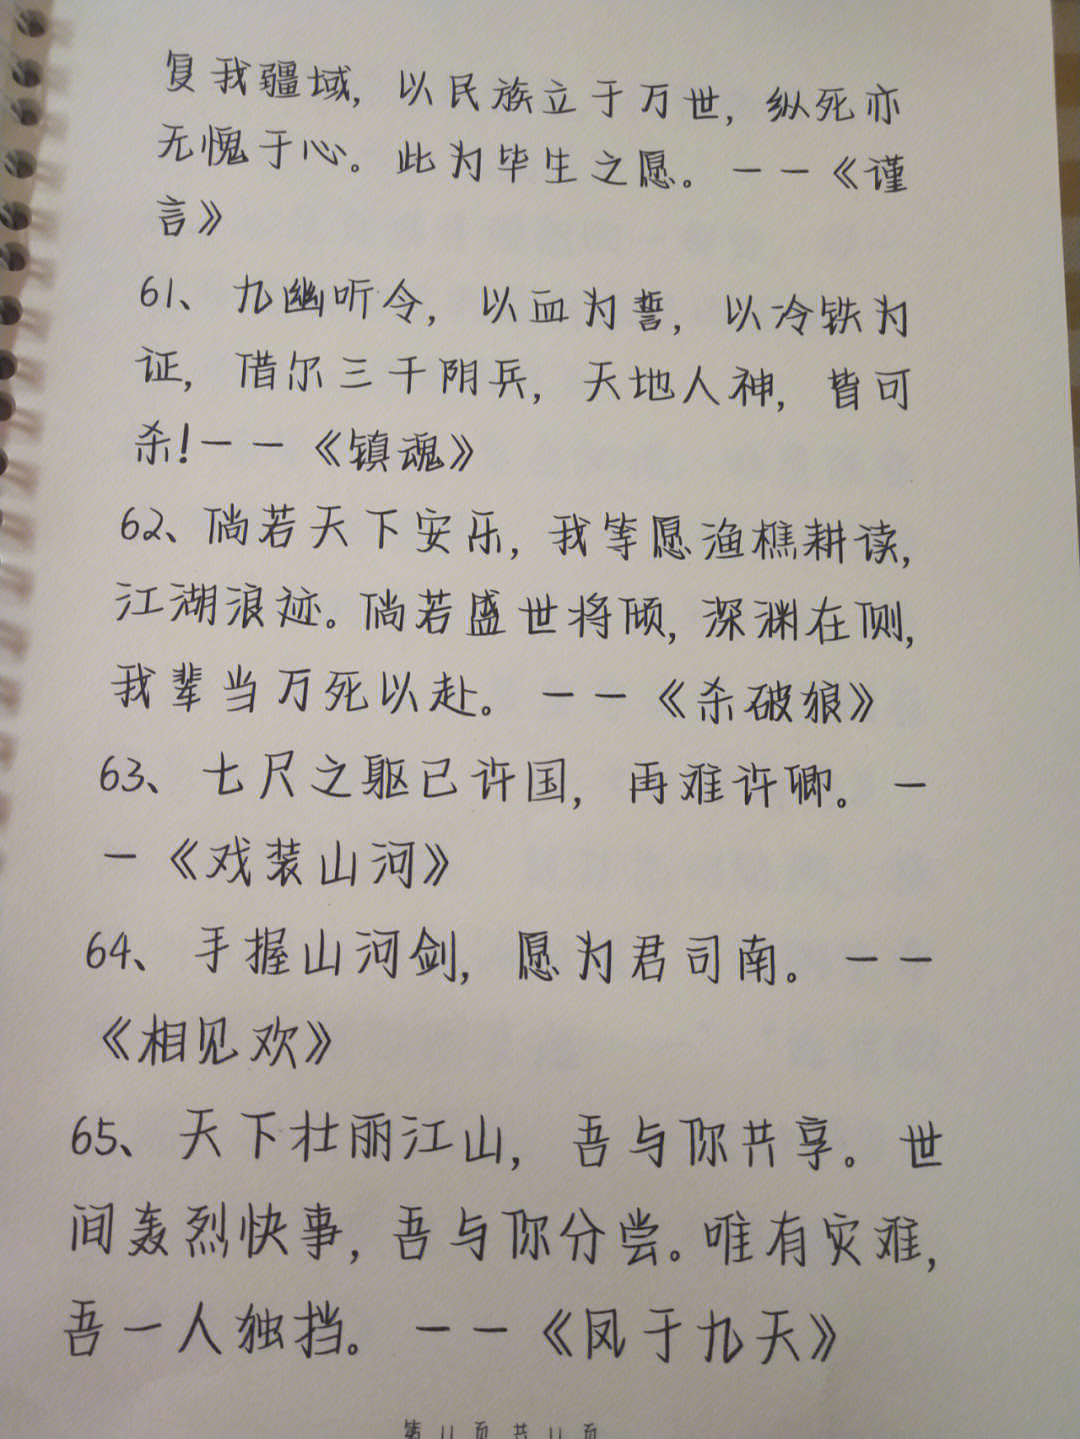 复我疆域，以民族立于万世，纵死亦
无愧于心。此为毕生之愿。——《谨
言》
61、九幽听令，以血为誓，以冷铁为
证，借尔三千阴兵，天地人神，皆可
杀！——《镇魂》
62、倘若天下安乐，我等愿渔樵耕读，
江湖浪迹。倘若盛世将倾，深渊在侧，
我辈当万死以赴。——《杀破狼》
63、七尺之躯已许国，再难许卿。—
—《戏装山河》
64、手握山河剑，愿为君司南。——
《相见欢》
65、天下壮丽江山，吾与你共享。世
间轰烈快事，吾与你分尝。唯有灾难，
吾一人独挡。——《凤于九天》
第11页共11页